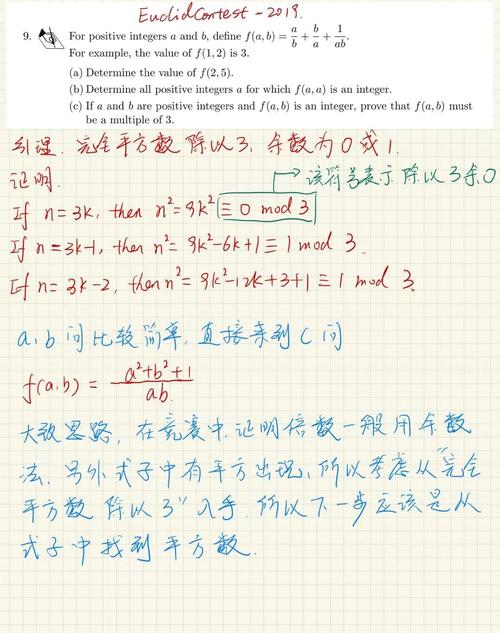 Euclid Contest - 2019.
9. For positive integers a and b, define f(a, b) = a/b + b/a + 1/ab.
For example, the value of f(1, 2) is 3.
(a) Determine the value of f(2, 5).
(b) Determine all positive integers a for which f(a, a) is an integer.
(c) If a and b are positive integers and f(a, b) is an integer, prove that f(a, b) must
be a multiple of 3.
引理. 完全平方数 除以 3, 余数为 0 或 1.
证明.
该符号表示除以 3 余 0
If n = 3k, then n² = 9k² ≡ 0 mod 3
If n = 3k-1, then n² = 9k²-6k+1 ≡ 1 mod 3.
If n = 3k-2, then n² = 9k²-12k+3+1 ≡ 1 mod 3.
a, b 问比较简单, 直接来到 C 问
f(a,b) = a²+b²+1 / ab.
大致思路, 在竞赛中, 证明倍数一般用余数
法. 另外式子中有平方出现, 所以考虑从"完全
平方数 除以 3" 入手. 所以下一步应该是从
式子中找到平方数.